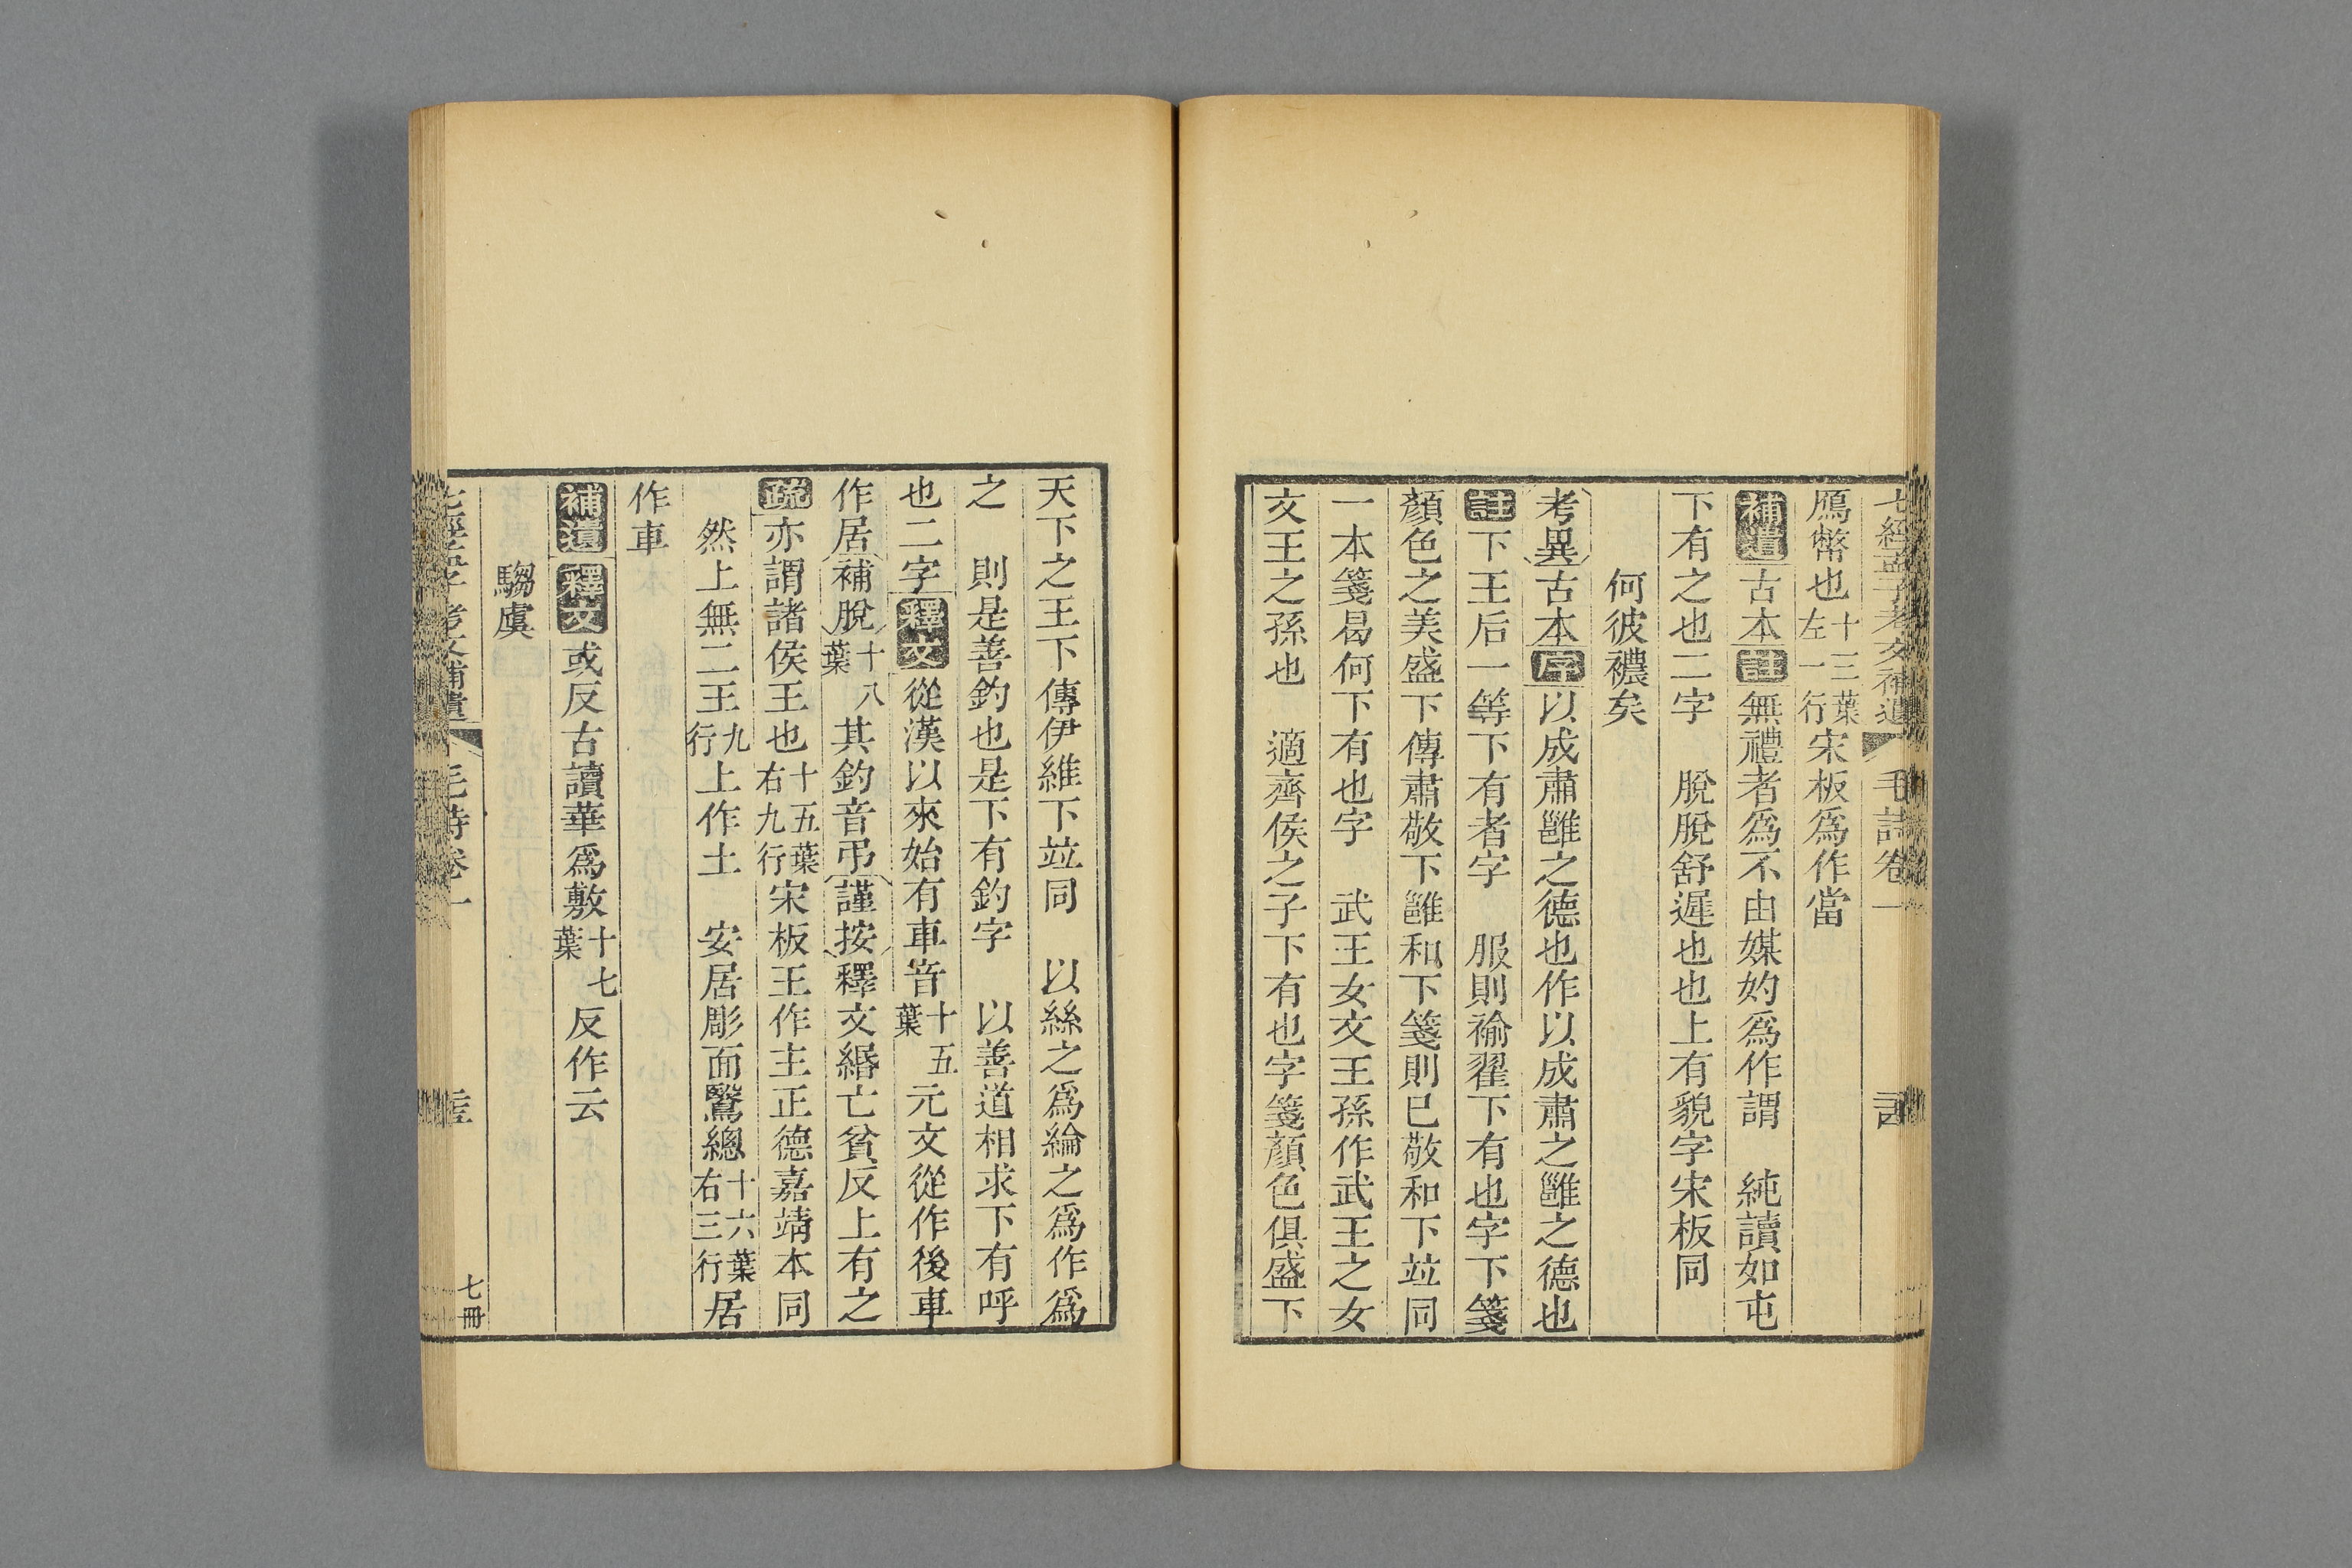 七經孟子考文補遺 毛詩卷一
鴈幣也十三葉左一行宋板爲作當
補遺古本註無禮者爲不由媒妁爲作謂 純讀如屯
下有之也二字 脫脫舒遲也也上有貌字宋板同
何彼襛矣
考異古本序以成肅雝之德也作以成肅之雝之德也
註下王后一等下有者字 服則褕翟下有也字下箋
顏色之美盛下傳肅敬下雝和下箋則巳敬和下竝同
一本箋曷何下有也字 武王女文王孫作武王之女
文王之孫也 適齊侯之子下有也字箋顏色俱盛下
天下之王下傳伊維下竝同 以絲之爲綸之爲作爲
之 則是善釣也是下有釣字 以善道相求下有呼
也二字釋文從漢以來始有車音十五葉元文從作後車
作居補脫十八葉其釣音弔謹按釋文緡亡貧反上有之
疏亦謂諸侯王也十五葉右九行宋板王作主正德嘉靖本同
然上無二王九行上作土 安居彫面鷖總十六葉右三行居
作車
補遺釋文或反古讀華爲敷十七葉反作云
騶虞
七經孟子考文補遺 毛詩卷一 七冊